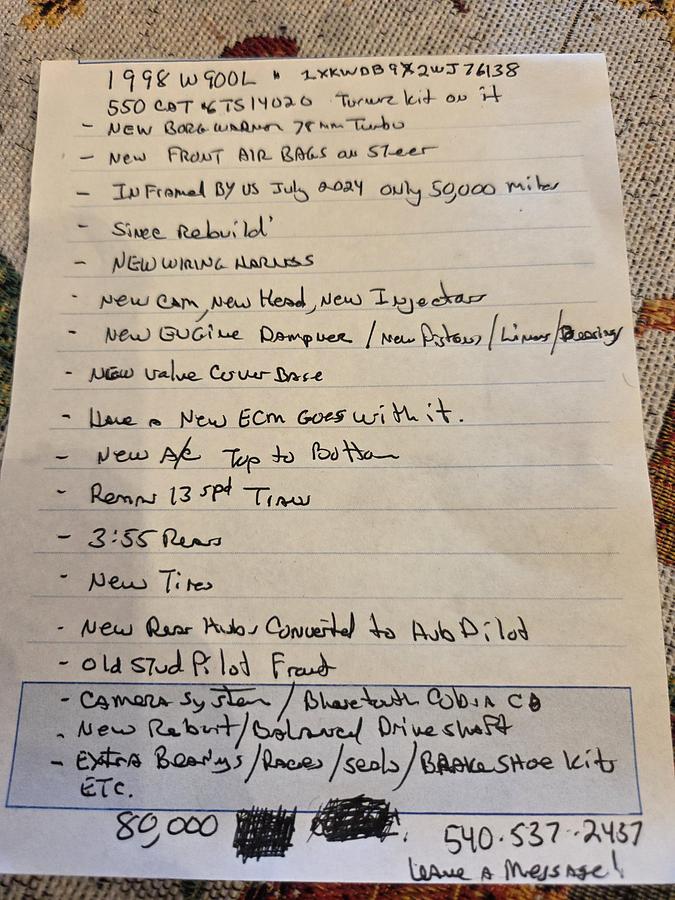 1998 W900L # 1XKWDB9X2WJ76138
550 CAT 6TS14020 Turner kit on it
- New Borg Warner 78mm Turbo
- New FRONT AIR BAGS on Steer
- InFramed BY US July 2024 only 50,000 miles
- Since Rebuild'
- NEW WIRING HARNESS
- New Cam, New Head, New Injectors
- New Engine Dampner / New Pistons / Liners / Bearings
- New Valve Cover Base
- Have a New ECM Goes with it.
- New A/C Top to Bottom
- Reman 13 spd Trans
- 3:55 Rears
- New Tires
- New Rear Hubs Converted to Hub Pilot
- Old Stud Pilot Front
- CAMERA System / Bluetooth Cobra CB
- New Rebuilt/Balanced Driveshaft
- EXTRA Bearings/Races/seals/BRAKE SHOE kits
ETC.
80,000
540-537-2437
Leave A Message!